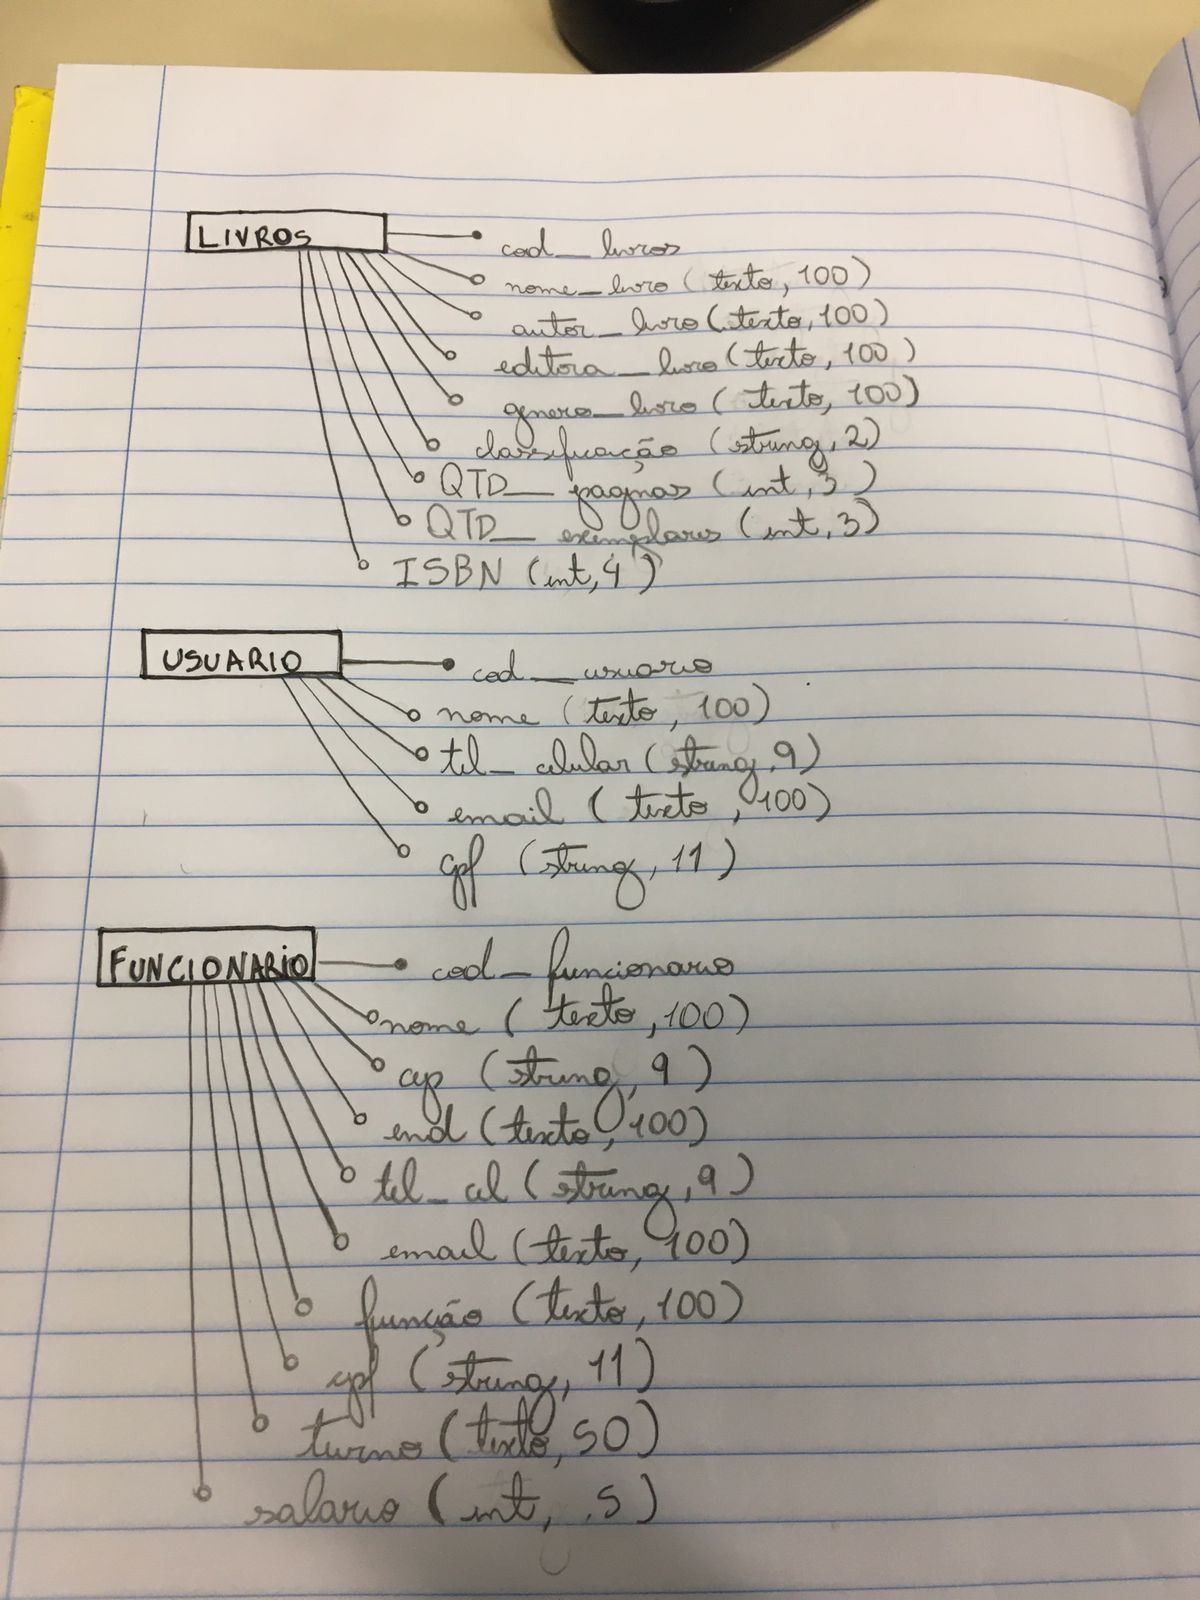 LIVROS
cod_livros
nome_livro (texto, 100)
autor_livro (texto, 100)
editora_livro (texto, 100)
genero_livro (texto, 100)
classificação (string, 2)
QTD_pagnas (int, 3)
QTD_exemplares (int, 3)
ISBN (int, 4)
USUARIO
cod_usuario
nome (texto, 100)
tel_celular (string, 9)
email (texto, 100)
cpf (string, 11)
FUNCIONARIO
cod_funcionario
nome (texto, 100)
cep (string, 9)
end (texto, 100)
tel_cel (string, 9)
email (texto, 100)
função (texto, 100)
cpf (string, 11)
turno (texto, 50)
salario (int, 5)